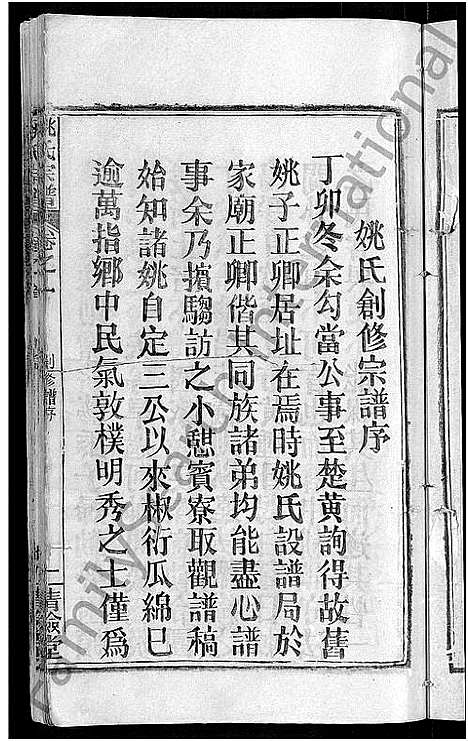 姚氏創修宗譜序
丁卯冬余勾當公事至楚黃詢得故舊
姚子正卿居址在焉時姚氏設譜局於
家廟正卿偕其同族諸弟均能盡心譜
事余乃擯騶訪之小憩賓寮取觀譜稿
始知諸姚自定三公以來椒衍瓜綿已
逾萬指鄉中民氣敦樸明秀之士僅爲
姚氏宗譜
卷之一
創修譜序
一
FamilySearch International